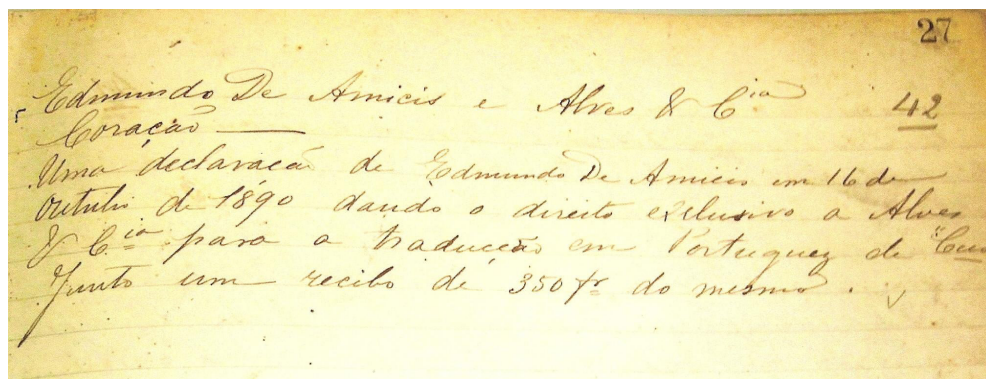 27
Edmundo De Amicis e Alves & Cia 42
Coração —
Uma declaração de Edmundo De Amicis em 16 de
Outubro de 1890 dando o direito exclusivo a Alves
& Cia para a traducção em Portuguez de "Cuo
Junto um recibo de 350 fr do mesmo.